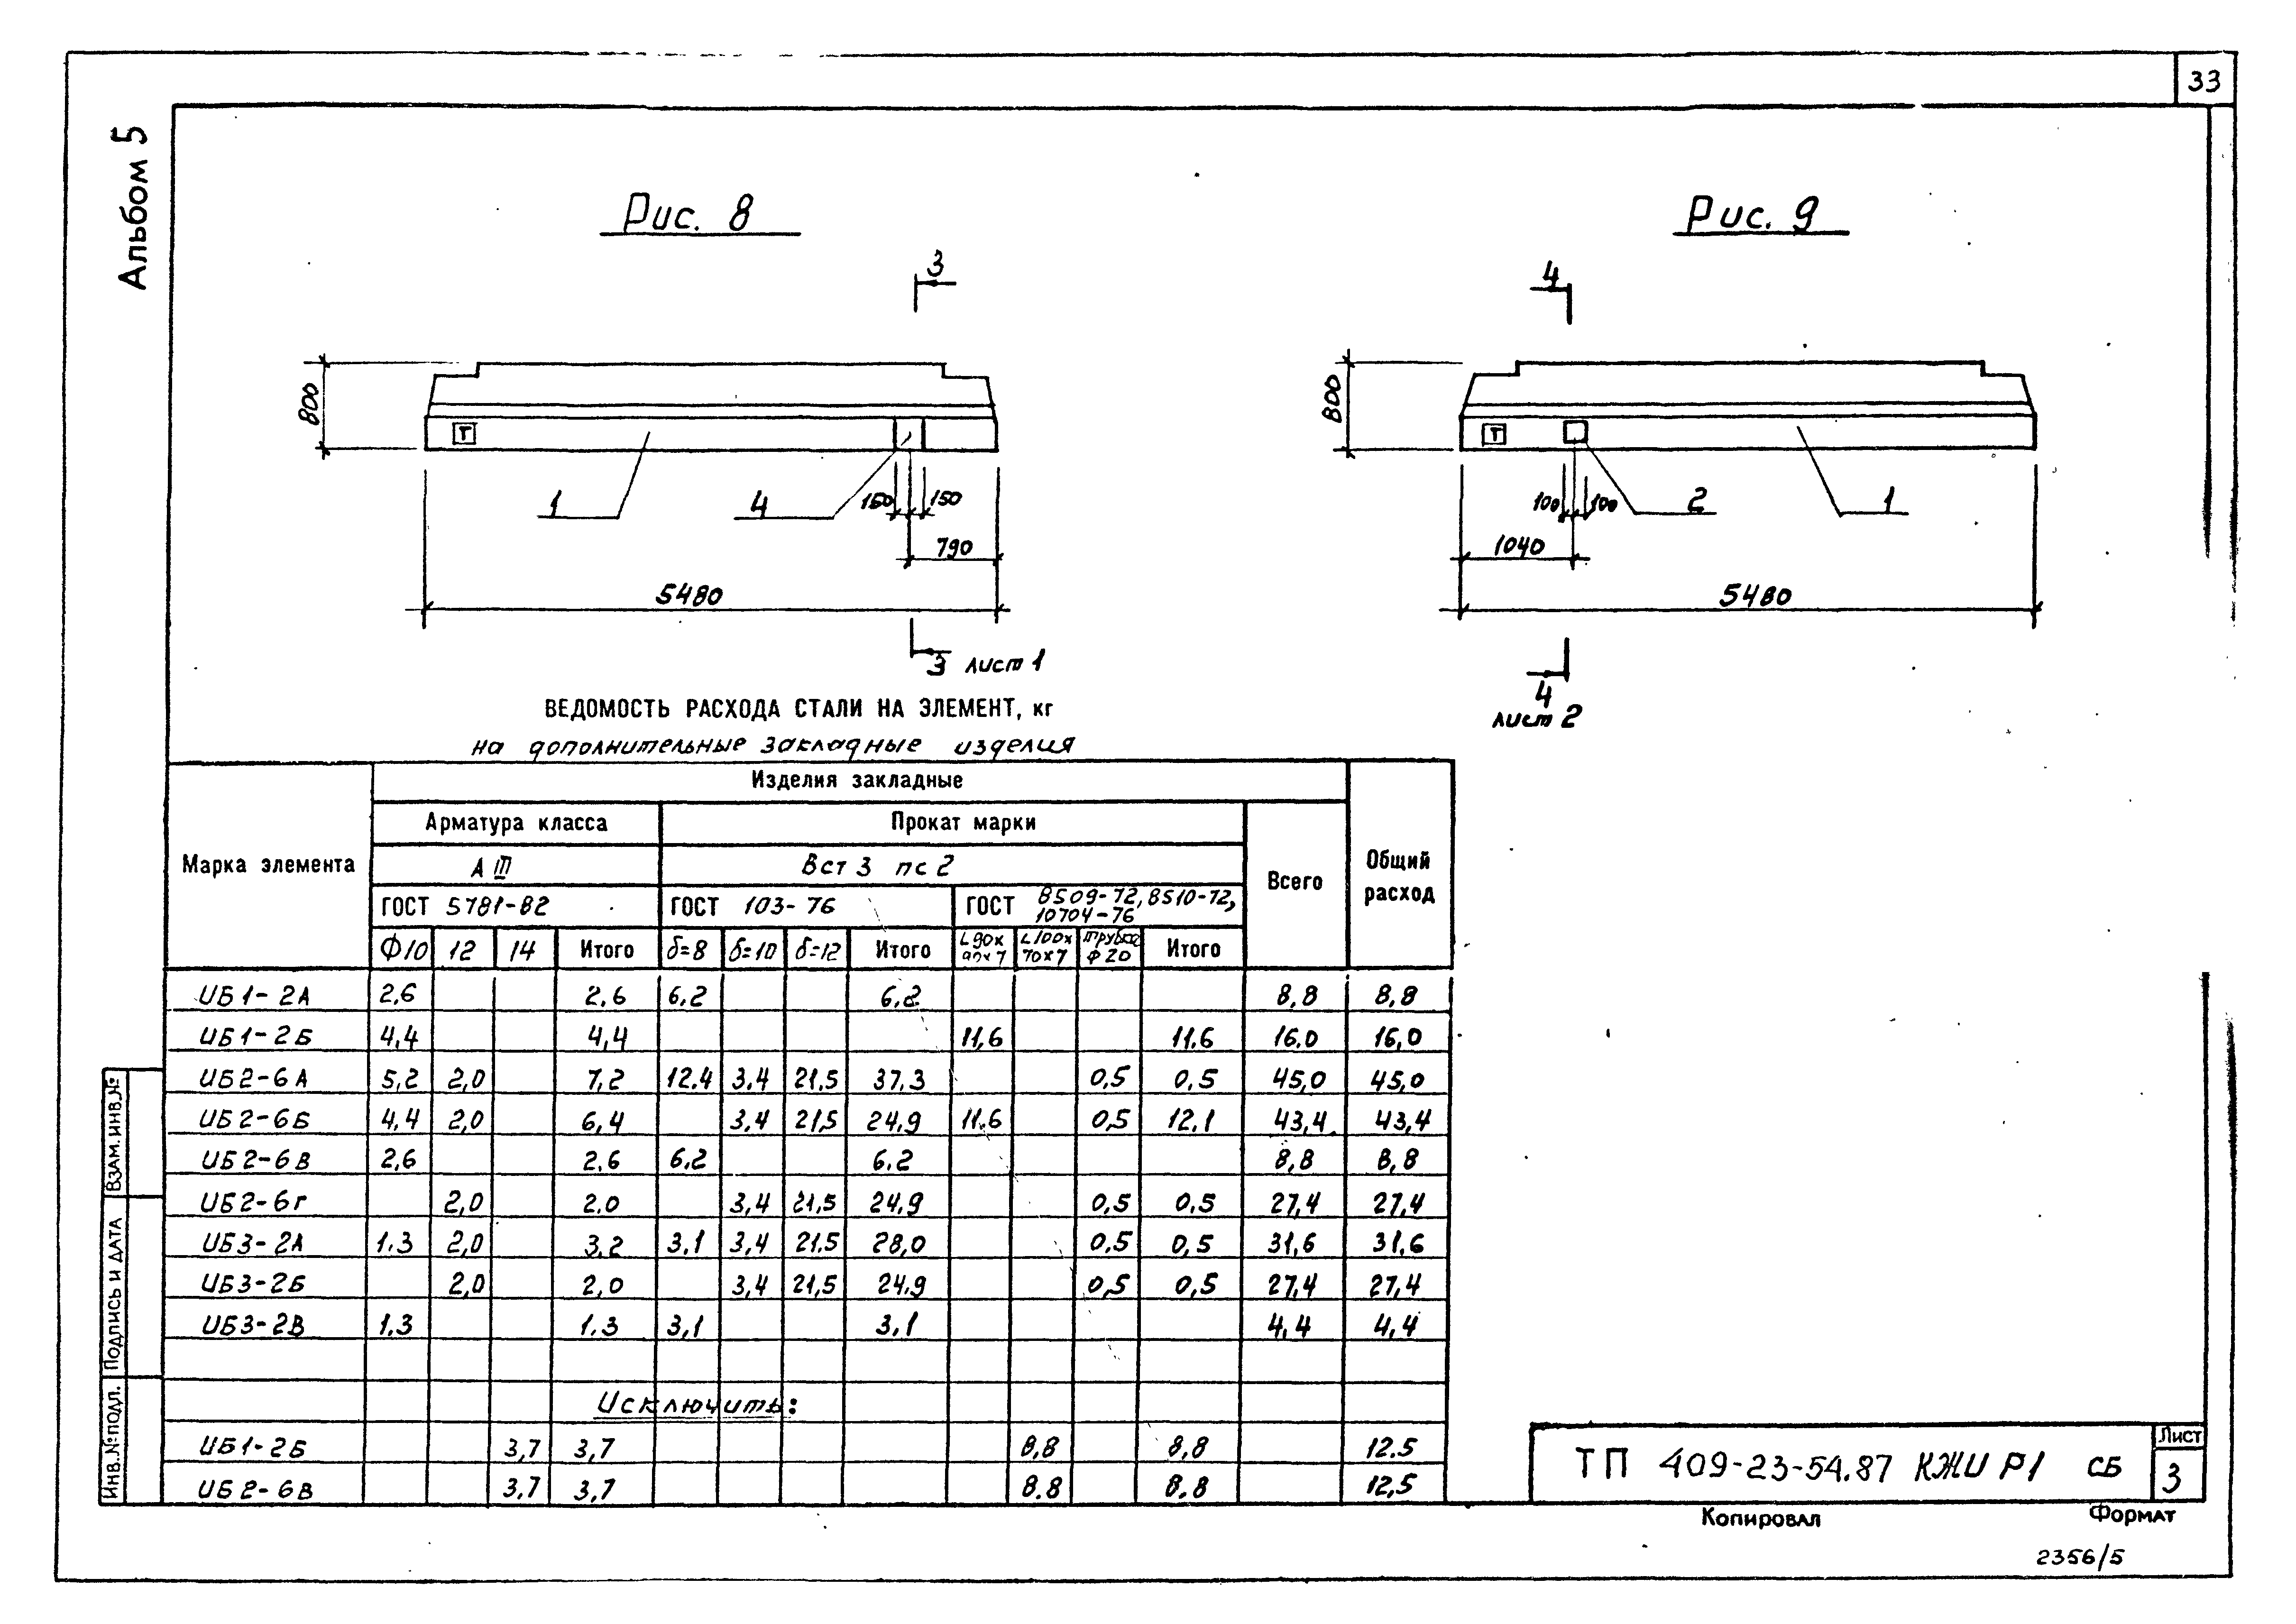 33
Альбом 5
Рис. 8
Рис. 9
3
4
800
800
Т
Т
1
4
150
150
100
100
2
1
790
1040
5480
5480
3 лист 1
4
лист 2
ВЕДОМОСТЬ РАСХОДА СТАЛИ НА ЭЛЕМЕНТ, кг
на дополнительные закладные изделия
Марка элемента
Изделия закладные
Общий расход
Арматура класса
Прокат марки
Всего
А III
Вст 3 пс 2
ГОСТ 5781-82
ГОСТ 103-76
ГОСТ 8509-72, 8510-72, 10704-76
Ф10 12 14 Итого δ=8 δ=10 δ=12 Итого L90х90х7 L100х70х7 трубка Ф20 Итого
ИБ1-2А 2,6 2,6 6,2 6,2 8,8 8,8
ИБ1-2Б 4,4 4,4 11,6 11,6 16,0 16,0
ИБ2-6А 5,2 2,0 7,2 12,4 3,4 21,5 37,3 0,5 0,5 45,0 45,0
ИБ2-6Б 4,4 2,0 6,4 3,4 21,5 24,9 11,6 0,5 12,1 43,4 43,4
ИБ2-6В 2,6 2,6 6,2 6,2 8,8 8,8
ИБ2-6Г 2,0 2,0 3,4 21,5 24,9 0,5 0,5 27,4 27,4
ИБ3-2А 1,3 2,0 3,2 3,1 3,4 21,5 28,0 0,5 0,5 31,6 31,6
ИБ3-2Б 2,0 2,0 3,4 21,5 24,9 0,5 0,5 27,4 27,4
ИБ3-2В 1,3 1,3 3,1 3,1 4,4 4,4
Исключить:
ИБ1-2Б 3,7 3,7 8,8 8,8 12,5
ИБ2-6В 3,7 3,7 8,8 8,8 12,5
Взам. инв. №
Подпись и дата
Инв. № подл.
ТП 409-23-54.87 КЖИ Р1 СБ
Лист
3
Копировал
Формат
2356/5